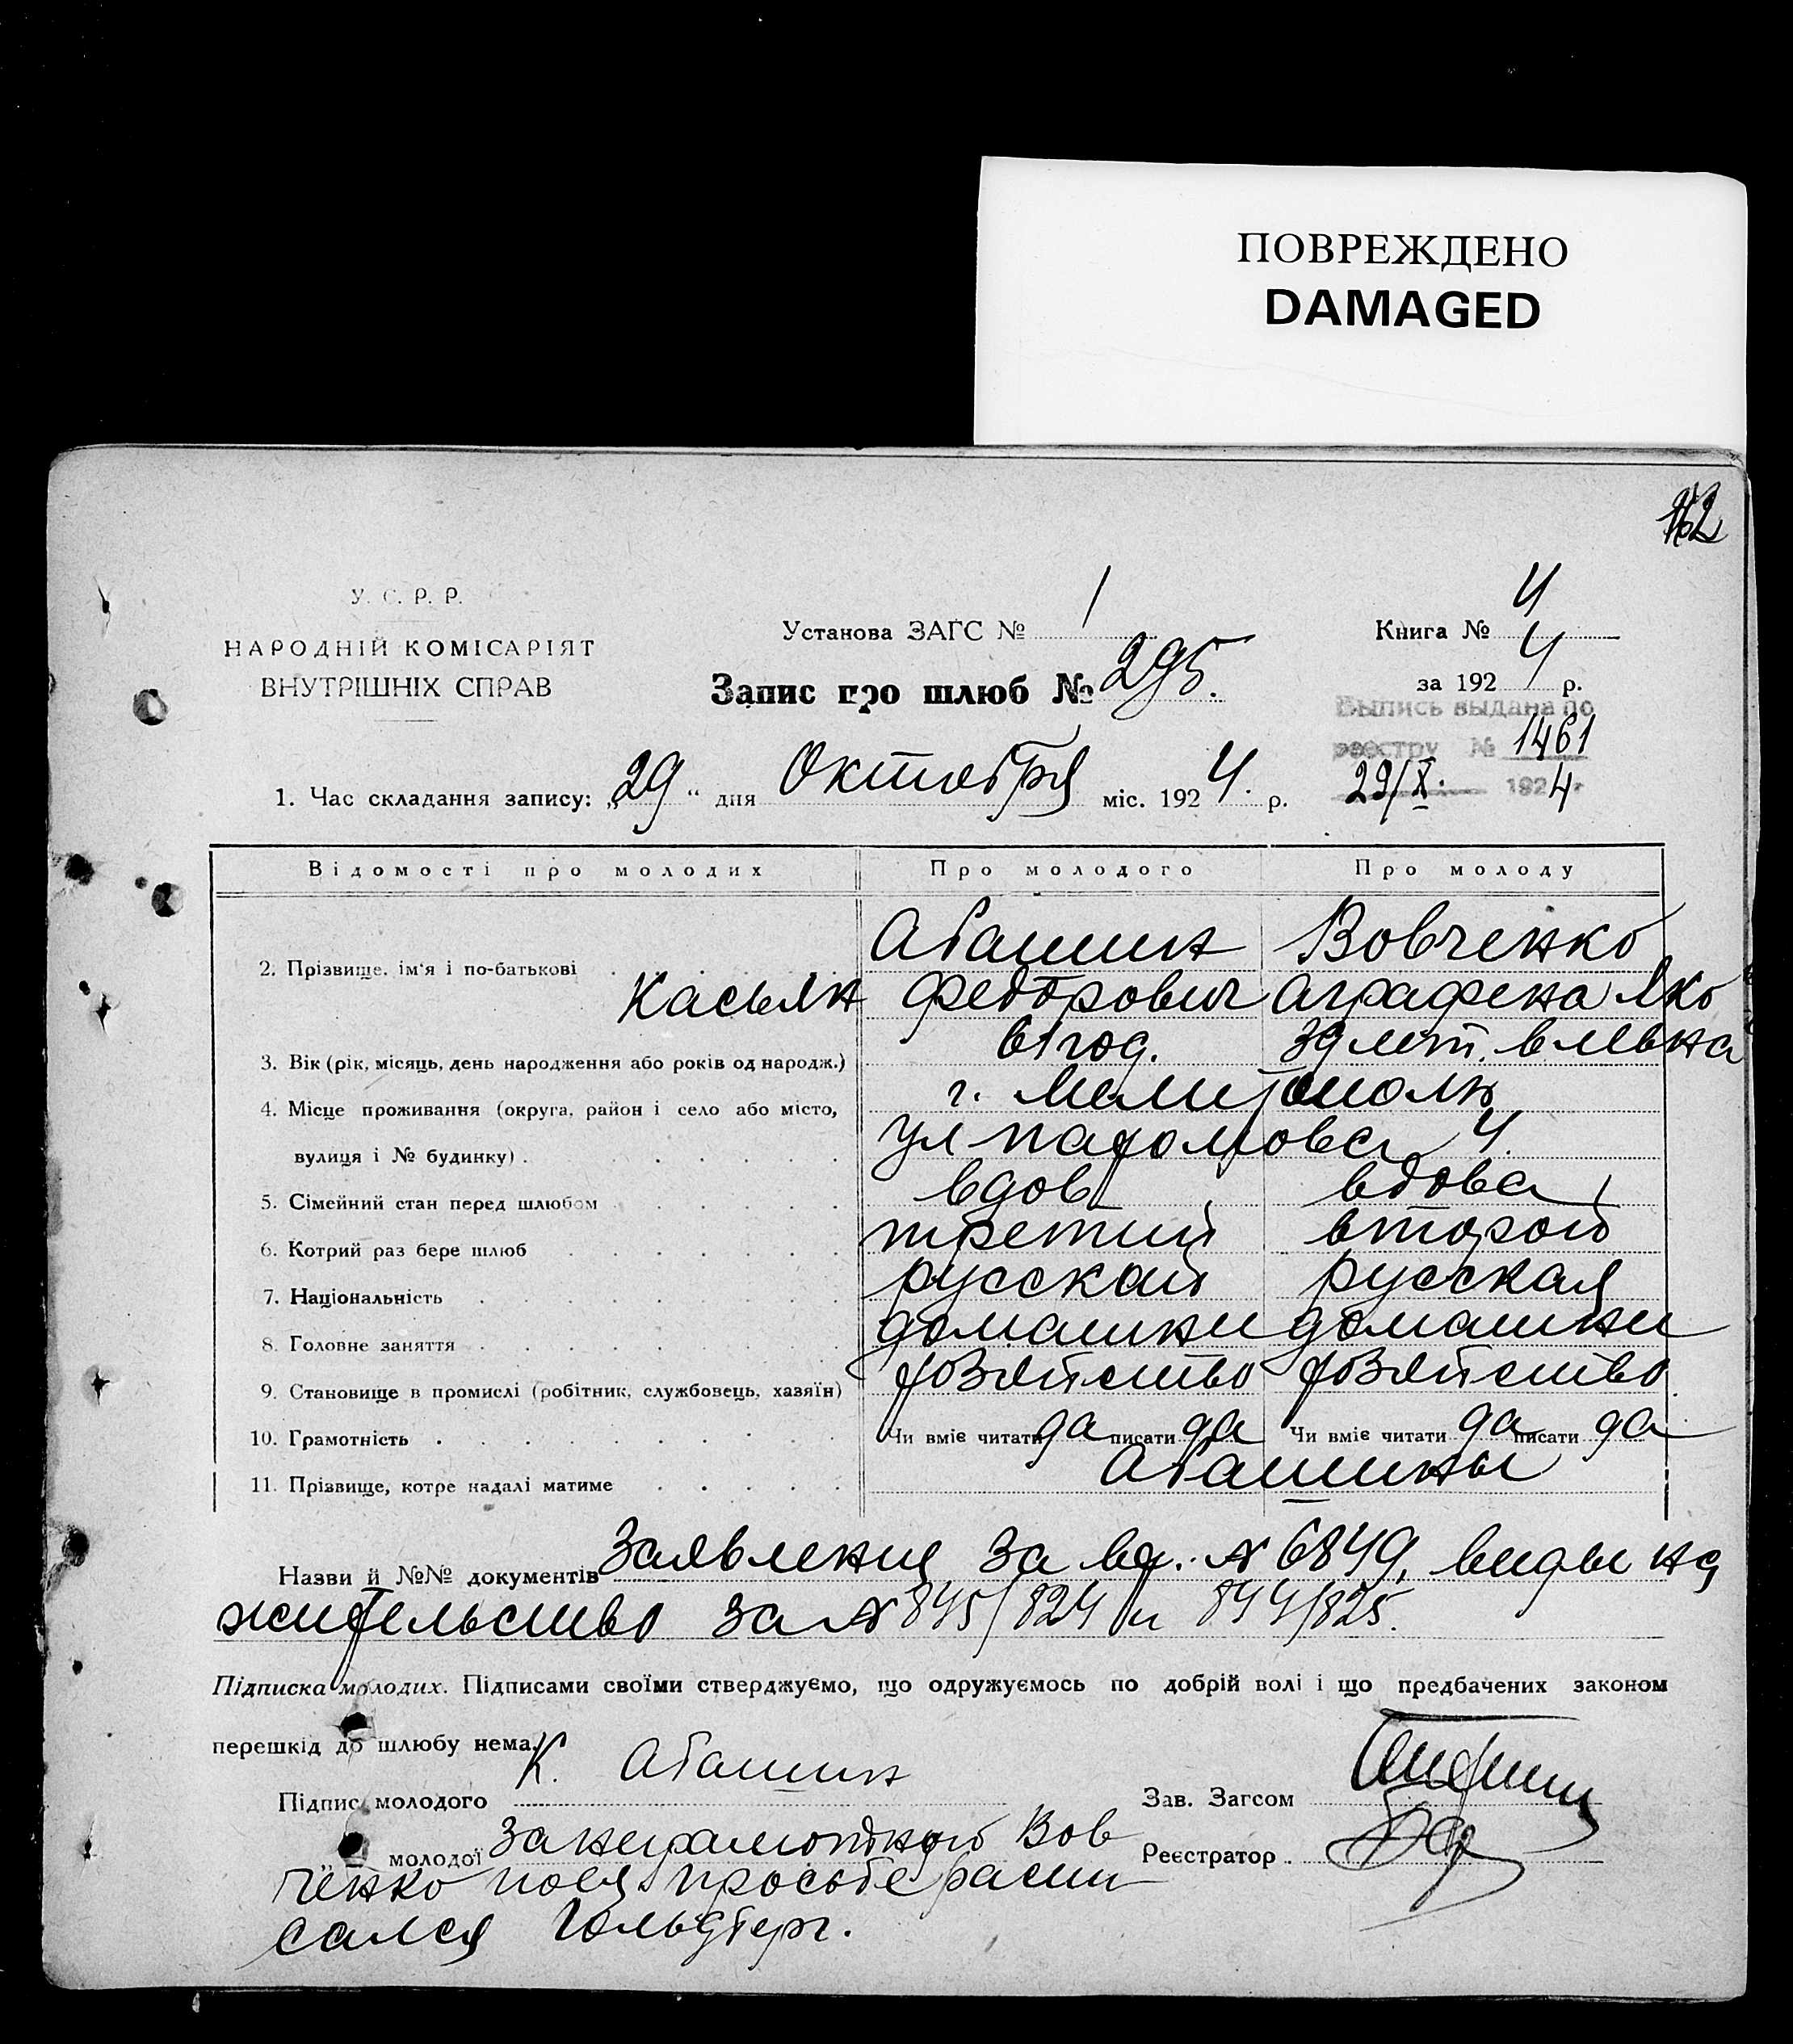 ПОВРЕЖДЕНО
DAMAGED
У. С. Р. Р.
НАРОДНІЙ КОМІСАРІЯТ
ВНУТРІШНІХ СПРАВ
Установа ЗАГС № 1
Запис про шлюб № 295.
Книга № 4
за 1924 р.
Выпись выдана по
реестру № 1461
29/X. 1924 г
1. Час складання запису: „29“ дня Октября міс. 1924. р.
Відомості про молодих Про молодого Про молоду
2. Прізвище, ім'я і по-батькові Абашин Вовченко
Касьян Федорович Аграфена Яко
влевна
3. Вік (рік, місяць, день народження або років од народж.) 61 год. 39 лет.
4. Місце проживання (округа, район і село або місто, г. Мелитополь
вулиця і № будинку) ул 4.
5. Сімейний стан перед шлюбом вдов вдова
6. Котрий раз бере шлюб третий второй
7. Національність русский русская
8. Головне заняття домашни домашни
9. Становище в промислі (робітник, службовець, хазяїн) хозяйство хозяйство
10. Грамотність Чи вміє читати да писати да Чи вміє читати да писати да
11. Прізвище, котре надалі матиме Абашины
Назви й №№ документів Заявления за вх. № 6849, виды на
жительство за № 845/824 и 844/825.
Підписка молодих. Підписами своїми стверджуємо, що одружуємось по добрій волі і що предбачених законом
перешкід до шлюбу нема.
Підпис молодого К. Абашин
Зав. Загсом
молодої за неграмотного Вов
Реєстратор
ченко по ея просьбе распи
сался Гольдберг.